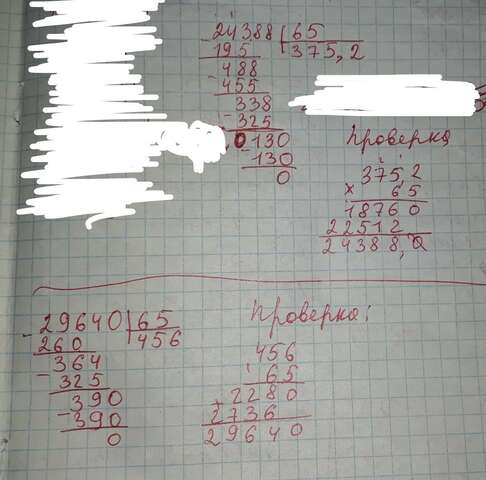 24388 | 65
195 | 375,2
488
455
338
325
0130
130
0
Проверка
375,2
× 65
18760
22512
24388,0
29640 | 65
260 | 456
364
325
390
390
0
Проверка:
456
65
2280
2736
29640